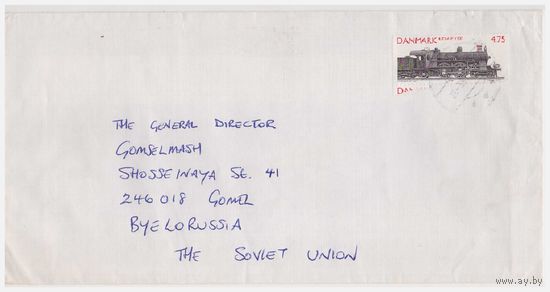 DANMARK 4.75
DA
THE GENERAL DIRECTOR
GOMSELMASH
SHOSSEINAYA SE. 41
246018 GOMEL
BYELORUSSIA
THE SOVIET UNION
www.ay.by